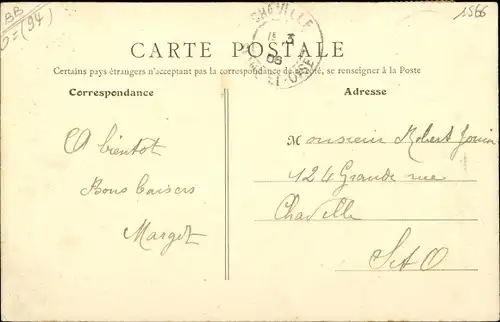 BB
(94)
1566
CHAVILLE
3
06
CARTE POSTALE
Certains pays étrangers n'acceptant pas la correspondance de ce côté, se renseigner à la Poste
Correspondance
Adresse
A bientot
Bons baisers
Margot
Monsieur Robert
124 Grande rue
Chaville
S et O